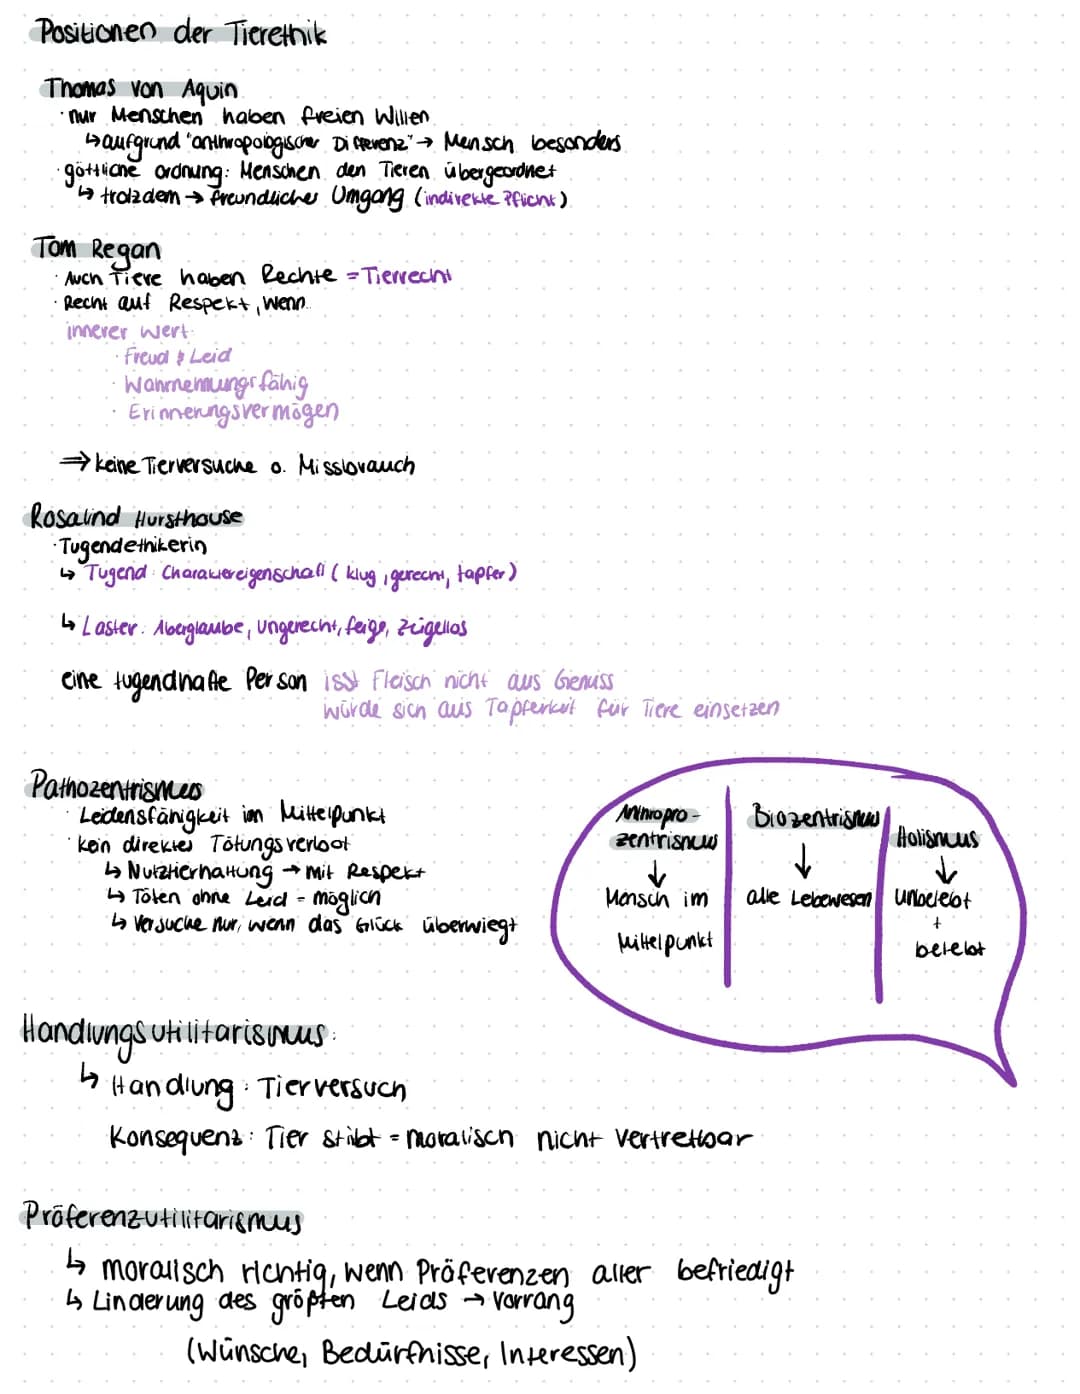 Positionen der Tierethik
Thomas von Aquin
· nur Menschen haben freien Willen
↳ aufgrund "anthropologischer Differenz" → Mensch besonders
· göttliche Ordnung: Menschen den Tieren übergeordnet
↳ trotzdem → freundlicher Umgang (indirekte Pflicht)
Tom Regan
· Auch Tiere haben Rechte = Tierrecht
· Recht auf Respekt, wenn
innerer Wert
· Freud & Leid
· Wahrnemungsfähig
· Erinnerungsvermögen
⇒ keine Tierversuche o. Missbrauch
Rosalind Hursthouse
· Tugendethikerin
↳ Tugend: Charaktereigenschaft (klug, gerecht, tapfer)
↳ Laster: Aberglaube, ungerecht, feige, zügellos
eine tugendhafte Person isst Fleisch nicht aus Genuss
würde sich aus Tapferkeit für Tiere einsetzen
Pathozentrismus
· Leidensfähigkeit im Mittelpunkt
· kein direktes Tötungsverbot
↳ Nutztierhaltung → mit Respekt
↳ Töten ohne Leid = möglich
↳ Versuche nur, wenn das Glück überwiegt
Anthropo-
zentrismus
↓
Mensch im
Mittelpunkt
Biozentrismus
↓
alle Lebewesen
Holismus
↓
unbelebt
+
belebt
Handlungsutilitarismus:
↳ Handlung: Tierversuch
Konsequenz: Tier stibt = moralisch nicht vertretbar
Präferenzutilitarismus
↳ moralisch richtig, wenn Präferenzen aller befriedigt
↳ Linderung des größten Leids → Vorrang
(Wünsche, Bedürfnisse, Interessen)